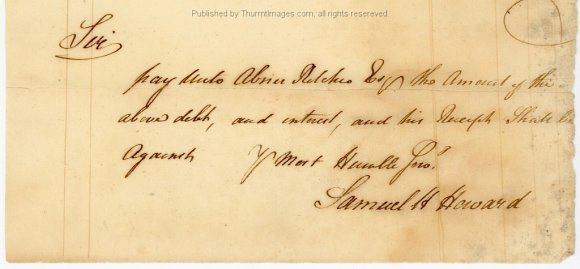 Published by ThurmtImages.com, all rights reserved.
Sir
pay unto Abner Esq the Amount of the
above debt, and interest, and his Receipt Shall be
Against Y Most Humble Serv.t
Samuel H Howard